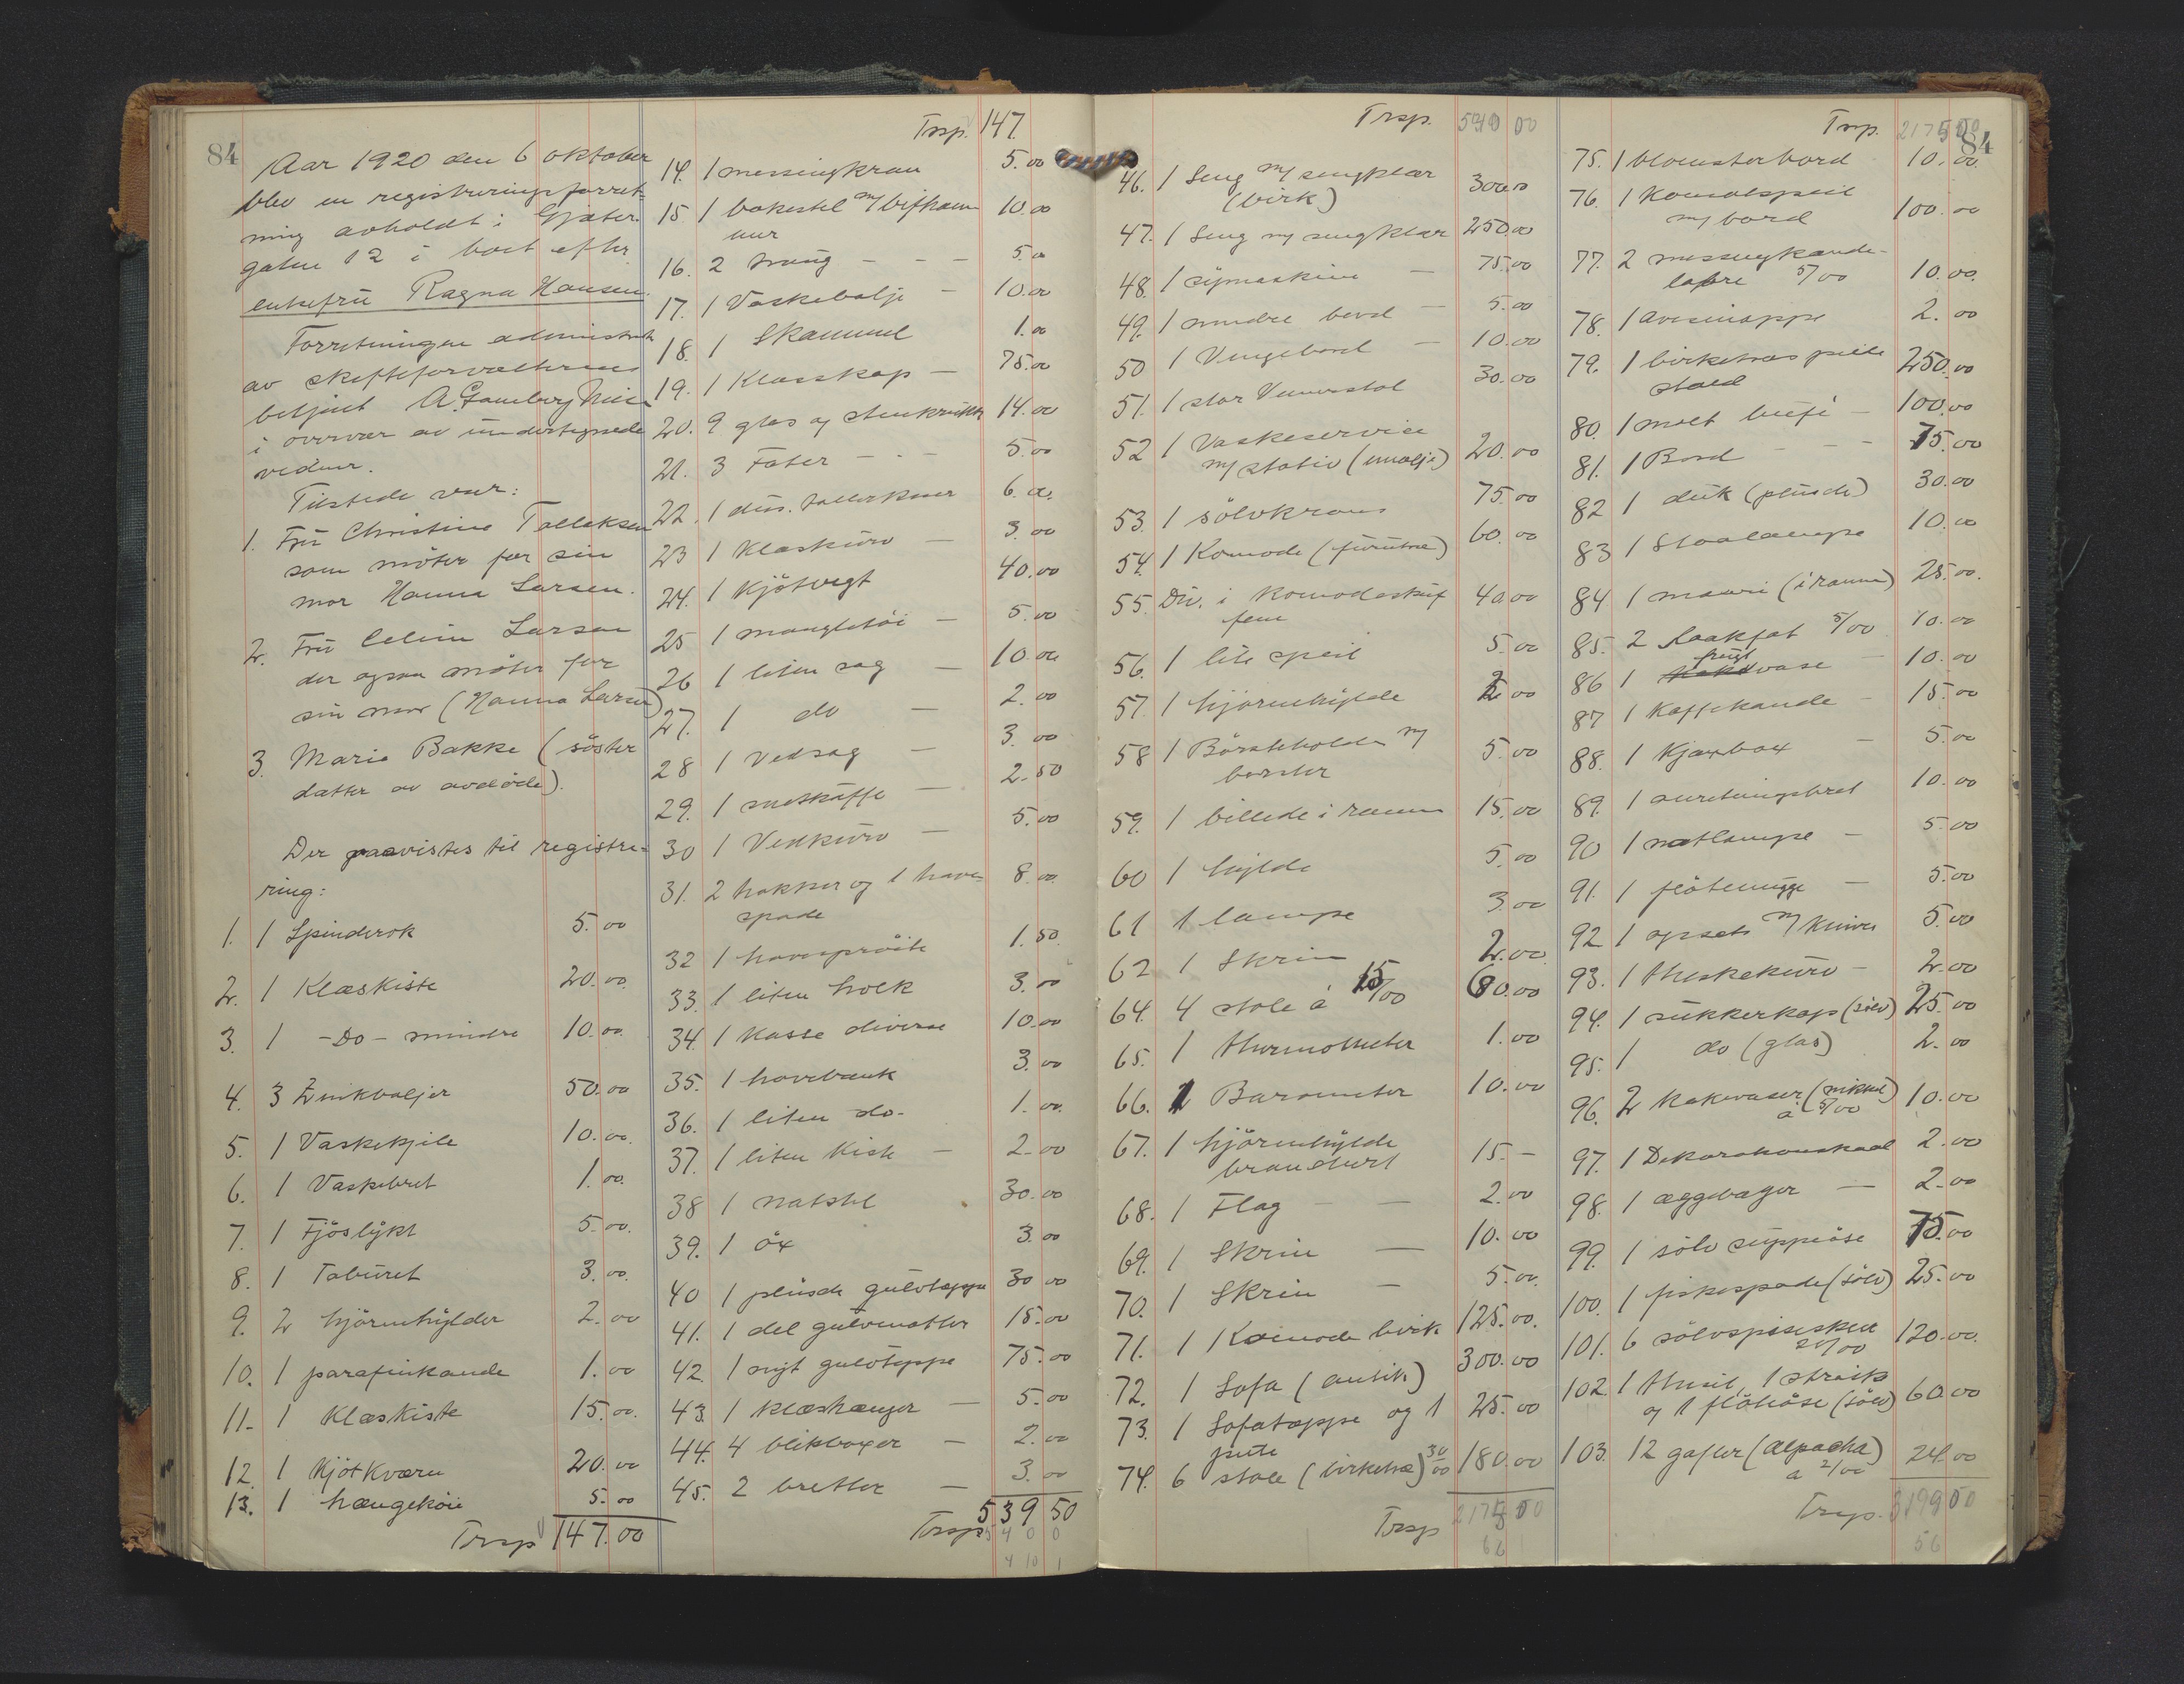 84
Aar 1920 den 6 oktober
blev en registreringsforret-
ning avholdt i Gjæter-
gaten 12 i boet efter
enkefrü Ragna Hansen.
Forretningen administrert
av skifteforvalterens
betjent
i overvær av undertegnede
vidner.
Tilstede var:
1. Frü Christine Tollaksen
som möter for sin
mor Hanna Larsen.
2. Frü Larsen
der ogsaa möter for
sin mor (Hanna Larsen)
3. Marie Bakke (söster
datter av avdöde).
Der paavistes til registre-
ring:
1. 1 Spinderok 5.00
2. 1 Klæskiste 20.00.
3. 1 -Do- mindre 10.00.
4. 3 Zinkbaljer 50.00
5. 1 Vaskekjele 10.00.
6. 1 Vaskebret 1.00.
7. 1 Fjöslykt 5.00.
8. 1 Taburet 3.00.
9. 2 hjörnehylder 2.00
10. 1 parafinkande 1.00
11. 1 Klæskiste 15.00.
12. 1 Kjötkværn 20.00
13. 1 hængeköie 5.00
Trsp 147.00
Trsp. 147
14. 1 messingkran 5.00
15 1 bakestel m/ 10.00
16. 2 - - - 5.00
17. 1 Vaskebalje - 10.00
18. 1 Skammel 1.00
19. 1 Klæsskap - 75.00
20. 9 glas og stenkrukker 14.00
21. 3 Fater - - - 5.00
22. 1 dus. tallerkener 6.00.
23 1 Klæskurv - 3.00
24. 1 Kjötvegt 40.00
25 1 mangletöi - 5.00
26 1 liten sag - 10.00
27. 1 do - 2.00
28 1 Vedsag - 3.00
29. 1 sneskuffe - 2.50
30 1 Vedkurv - 5.00
31. 2 hakker og 1 have-
spade 8.00.
32 1 havespröite 1.50.
33. 1 liten holk 3.00
34. 1 Kasse diverse 10.00
35. 1 havebænk 3.00
36. 1 liten do. 1.00.
37. 1 liten Kiste - 2.00
38 1 natstol 30.00
39. 1 öx 3.00
40 1 plüsch gulvteppe 30 00
41. 1 del gulvmatter 15.00
42. 1 nyt gulvteppe 75.00
43. 1 klæshænger - 5.00
44. 4 blikboxer - 2.00
45. 2 bretter - 3.00
Trsp 539 50
54 0 0
4 10 1
Trsp. 540 00
46. 1 Seng m/ sengklær
(birk) 300.00
47. 1 Seng m/ sengklær 250.00
48. 1 symaskine - 75.00
49. 1 mindre bord - 5.00
50 1 Vengebord - 10.00
51. 1 stor Lænestol 30.00
52 1 Vaskeservice
m/ stativ (emalje) 20.00
53. 1 sölvkrans 75.00
54. 1 Komode (furutræ) 60.00
55. Div. i Komodeskuf
fene 40 00
56. 1 lite speil 5.00
57. 1 hjörnehylde 2.00
58 1 Börsteholder m/
börster 5.00
59. 1 billede i ramme 15.00
60 1 hylde 5.00
61 1 lampe 3.00
62 1 Skrin 2.00
64. 4 stole á 15/00 60.00
65. 1 thermometer 1.00
66. 1 Barometer 10.00
67. 1 hjörnehylde
brændert 15.-
68. 1 Flag - - 2.00
69. 1 Skrin - 10.00
70. 1 Skrin - 5.00.
71. 1 Komode birk 125.00.
72. 1 Sofa (antik) 300.00
73. 1 Sofateppe og 1
pute 25.00
74. 6 stole (birketræ) 30/00 180.00
Trsp 2175 00
62
Trsp. 2175 00
84
75. 1 blomsterbord 10.00
76. 1 Konsolspeil
m/ bord 100.00
77. 2 messingkande-
labre 5/00 10.00.
78. 1 avismappe 2.00
79. 1 birketræs
250.00
80. 1 buffé - 100.00
81. 1 Bord - - - 75.00
82 1 duk (plusch) 30.00
83 1 Staalampe 10.00
84 1 maleri (i ramme) 25.00.
85. 2 kakfat 5/00 10.00
86 1 vase - 10.00
87 1 Kaffekande - 15.00
88. 1 Kjæxbox - 5.00
89. 1 anretningsbret 10.00
90 1 natlampe - 5.00
91. 1 flötemugge - 5.00
92 1 opsats m/ Kniver 5.00
93. 1 theskekurv - 2.00
94. 1 sukkerkop (sölv) 25.00
95. 1 do (glas) 2.00
96. 2 Kakevaser (nikkel)
a 5/00 10.00
97. 1 Dekorationskaal 2.00
98. 1 æggebæger - 2.00
99. 1 sölv suppeöse 75.00
100. 1 fiskespade (sölv) 25.00
101. 6 sölvspiseskeer
20/00 120.00.
102. 1 thesil, 1 strösk
og 1 flöteöse (sölv) 60.00
103. 12 gafler (alpacka)
a 2/00 24.00
Trsp. 3199 00
56